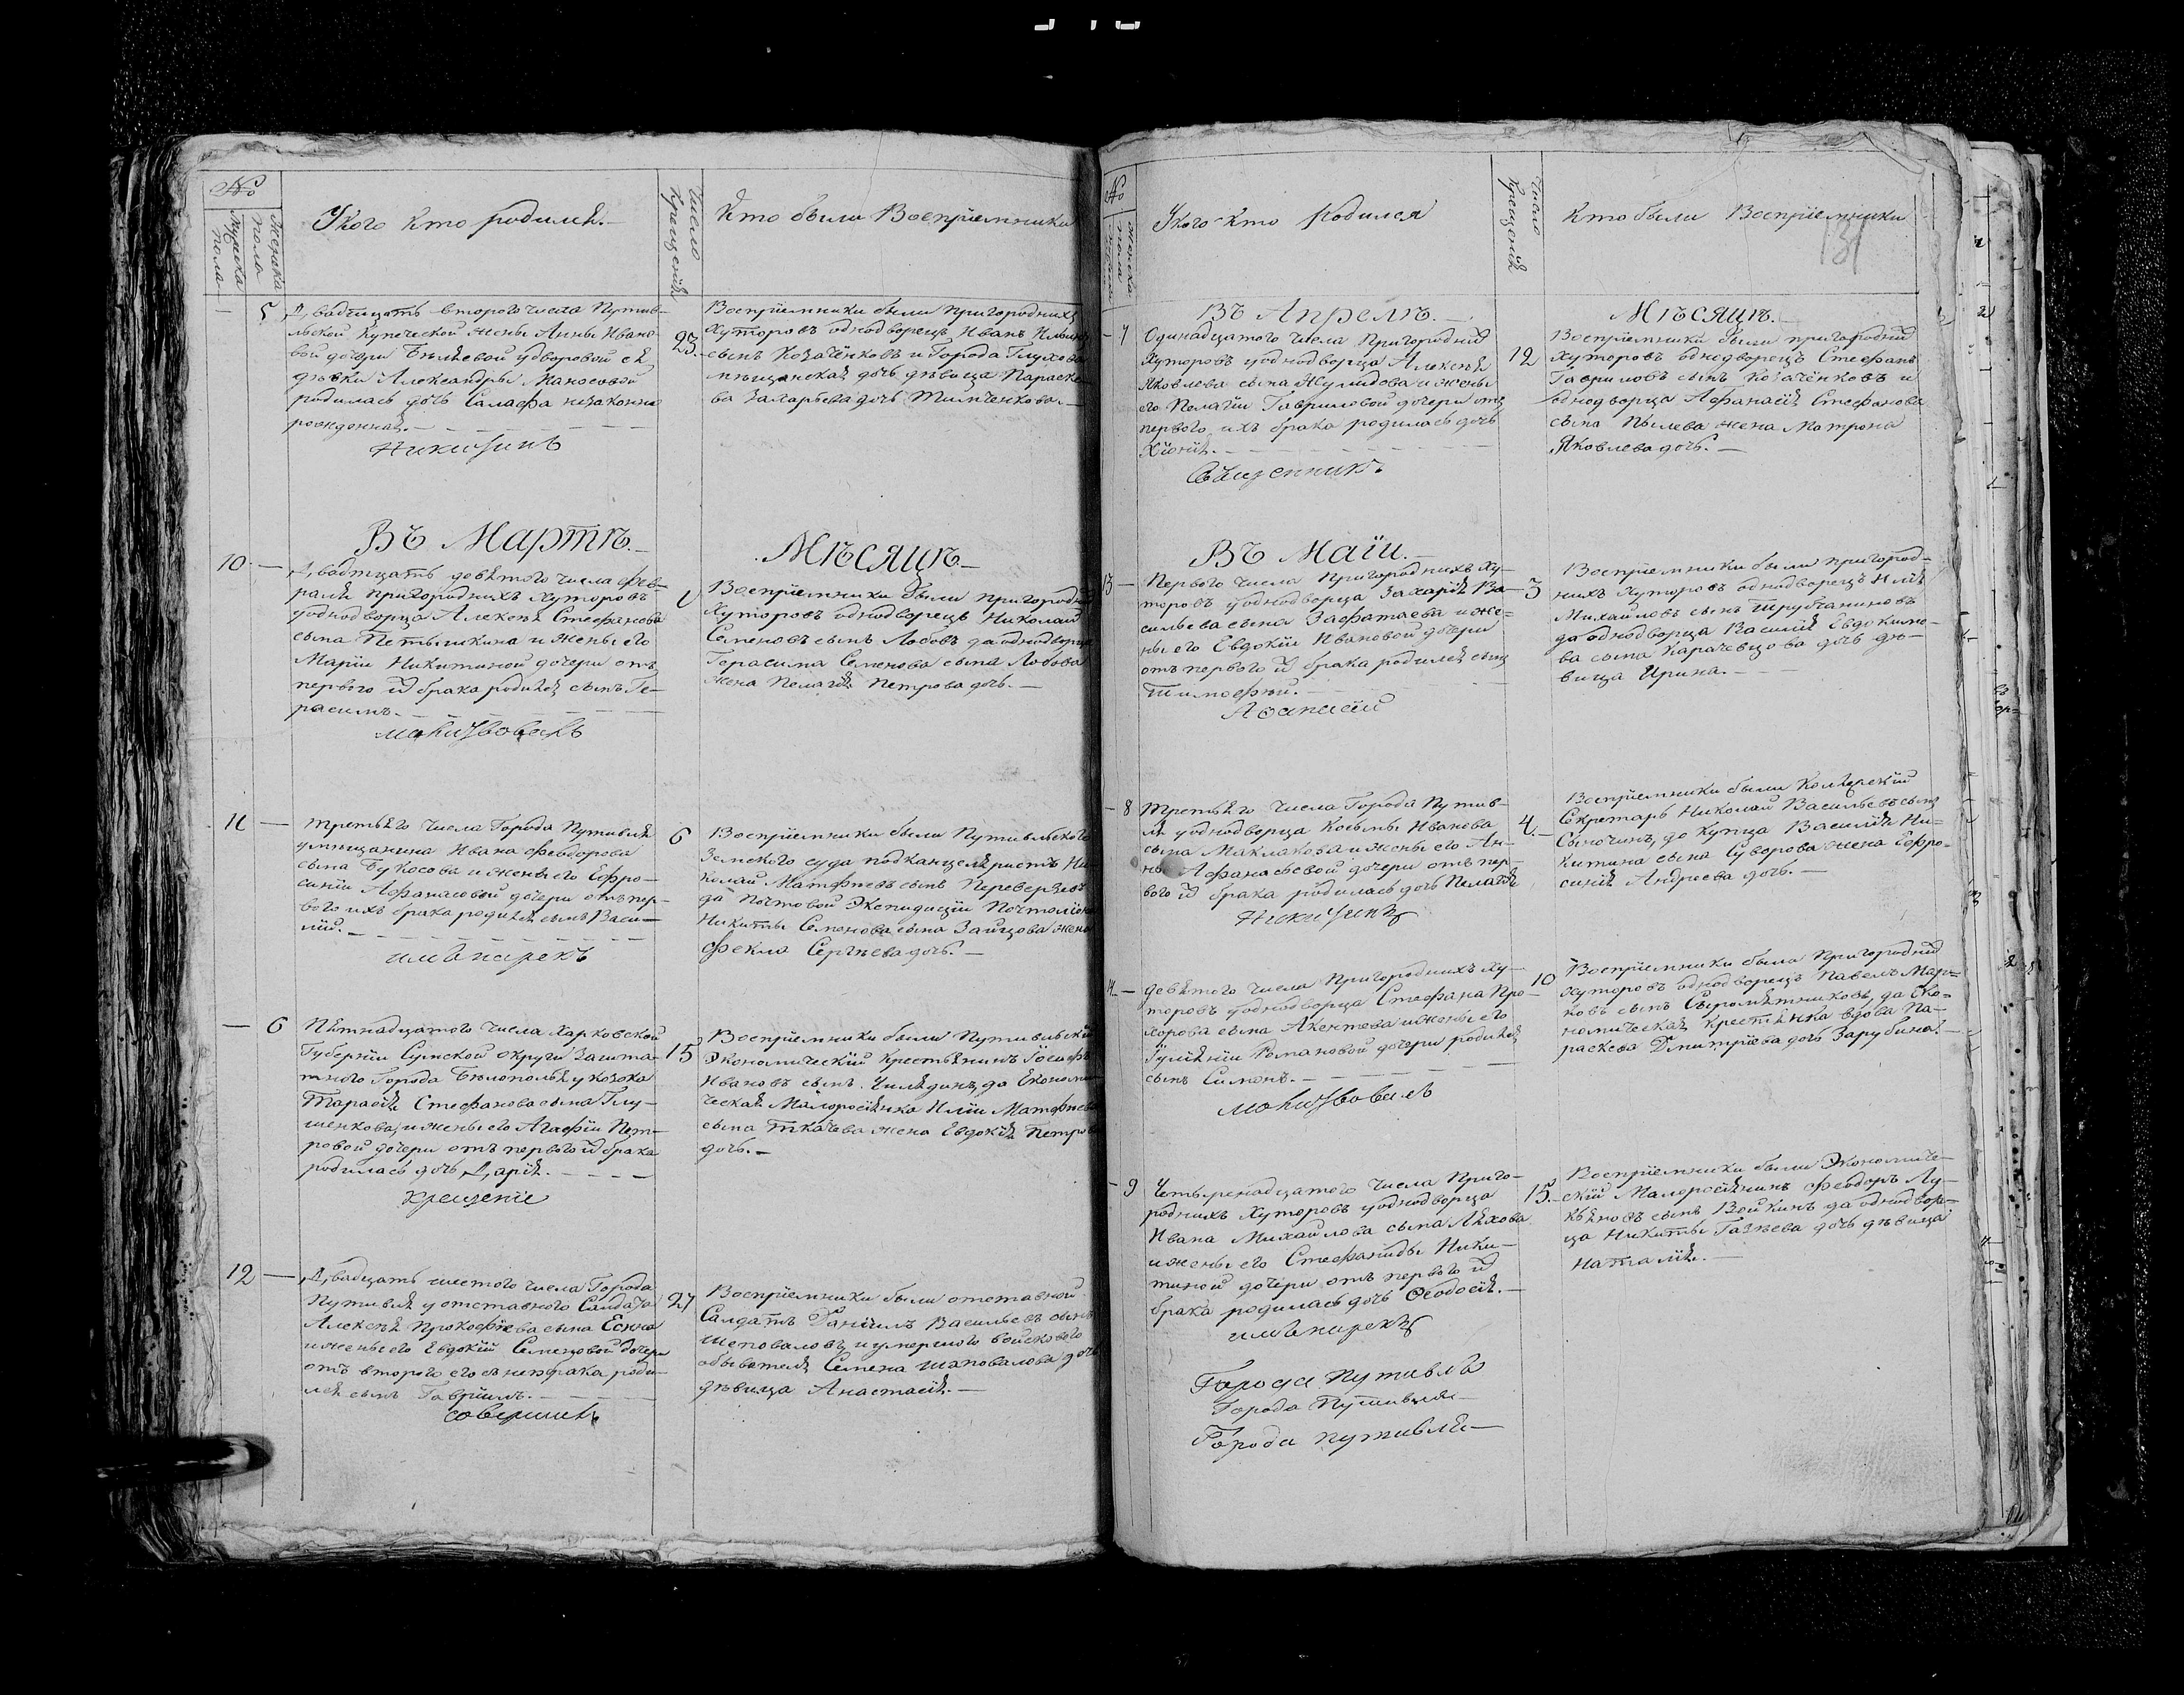 №
Мужска пола
Женска пола
Укого кто родилсѧ.
Число Крещенїѧ
Кто были Восприемники
5
Двадцать второго числа Путив-
льской Купеческой жены Анны Ивано-
вой дочери Бѣлѧевой удворовой еѧ
дѣвки Александры Маносовой
родилась дочь Саламфа незаконно
рожденнаѧ.
Никитинъ
23.
Восприемники были Пригородних
Хуторовъ однодворецъ Иванъ Ильинъ
сынъ Козачёнковъ и Города Глухова
мещанскаѧ дочь дѣвица Параске-
ва Захарьева дочь Тимченкова.
Въ Мартѣ.
Мѣсяцѣ.
10
Двадцать девѧтого числа фев-
ралѧ пригороднихъ Хуторовъ
уоднодворца Алексѣѧ Стефанова
сына Петышкина и жены его
Марїи Никитиной дочери отъ
первого их брака родилсѧ сынъ Ге-
расимъ.
молитвовалъ
1
Восприемники были пригородних
Хуторовъ однодворецъ Николай
Семеновъ сынъ Лобовъ да однодворца
Герасима Семенова сына Лобова
жена Пелагїѧ Петрова дочь.
11
третьѧго числа Города Путивлѧ
умещанина Ивана Феодорова
сына Букосова и жены его Ефро-
синїи Афанасовой дочери отъ пер-
вого ихъ брака родилсѧ сынъ Васи-
лїй.
имѧ нарекъ
6
Восприемники были Путивльского
Земского суда подканцелѧристъ Ни-
колай Матфеевъ сынъ Переверзевъ
да Почтовой Экспедицїи Почталїона
Никиты Семенова сына Зайцова жена
Фекла Сергѣева дочь.
6
Пѧтнадцатого числа Харковской
Губернїи Сумской округи Зашта-
тного Города Бѣлополья уКозака
Тарасїѧ Стефанова сына Глу-
щенкова, и жены его Агафїи Пет-
ровой дочери отъ первого их брака
родилась дочь Дарїѧ.
крещенїе
15
Восприемники были Путивльскїй
Экономическїй Крестьѧнинъ Іосифъ
Ивановъ сынъ Чилѧдинъ, да Економи-
ческаѧ Малоросїѧнка Илїи Матфеева
сына Ткачева жена Евдокїѧ Петрова
дочь.
12
Двадцать шестого числа Города
Путивлѧ у отставного Салдата
Алексѣѧ Прокофїева сына Еснна
и жены его Евдокїи Семеновой дочери
отъ второго его съ нею брака роди-
лсѧ сынъ Гаврїилъ.
совершилъ
27
Восприемники были отставной
Салдатъ Данїилъ Васильевъ сынъ
Шеповаловъ и умершого войскового
обывателѧ Семена Шаповалова дочь
дѣвица Анастасїѧ.
№
Женска пола
Укого кто родился
Число Крещенїѧ
Кто были Восприемники
131
Въ Апрелѣ.
Мѣсяцѣ.
7
Одинадцатого числа Пригородних
Хуторовъ уоднодворца Алексѣѧ
Яковлева сына Жулидова и жены
его Пелагїи Гавриловой дочери отъ
первого ихъ брака родилась дочь
Хїонїѧ.
Священникъ
12
Восприемники были пригородних
Хуторовъ однодворецъ Стефанъ
Гавриловъ сынъ Козачёнковъ и
однодворца Афанасїѧ Стефанова
сына Пылева жена Матрона
Яковлева дочь.
Въ Маїи.
13
Первого числа Пригороднихъ Ху-
торовъ уоднодворца Захарїѧ Ва-
сильева сына Зафатаева и же-
ны его Евдокїи Ивановой дочери
отъ первого их брака родилсѧ сынъ
Тимофей.
Афанасїй
3
Восприемники были пригород-
нихъ Хуторовъ однодворецъ Илїѧ
Михайловъ сынъ Трубчаниновъ
да однодворца Василїѧ Евдокимо-
ва сына Карачевцова дочь дѣ-
вица Ирина.
8
Третьѧго числа Города Путив-
лѧ уоднодворца Косьмы Иванова
сына Маклакова и жены его Ан-
ны Афанасьевой дочери отъ пер-
вого их брака родилась дочь Пелагїѧ
Никитинъ
4.
Восприемники были Колежскїй
Секретарь Николай Васильевъ сынъ
Сыночинъ, да Купца Василїѧ Ни-
китина сына Суворова жена Ефро-
синїѧ Андреева дочь.
14
девѧтого числа Пригороднихъ Ху-
торовъ уоднодворца Стефана Про-
хорова сына Акентева и жены его
Іулїѧнїи Романовой дочери родилсѧ
сынъ Симонъ.
молитвовалъ
10
Восприемники были Пригородних
Хуторовъ однодворецъ Павелъ Мар-
ковъ сынъ Сыромѧтниковъ, да Эко-
номическаѧ Крестьѧнка вдова Па-
раскева Дмитрїева дочь Зарубина.
9
Четырнадцатого числа Приго-
роднихъ Хуторовъ уоднодворца
Ивана Михайлова сына Лѧхова
и жены его Стефаниды Ники-
тиной дочери отъ первого их
брака родилась дочь Феодосїѧ.
имѧ нарекъ
15.
Восприемники были Экономиче-
скїй Малоросїѧнинъ Феодоръ Лу-
кьѧновъ сынъ Войкинъ да однодвор-
ца Никиты Газѣева дочь дѣвица
Наталїѧ.
Города Путивлѧ
Города Путивля
Города путивлѧ